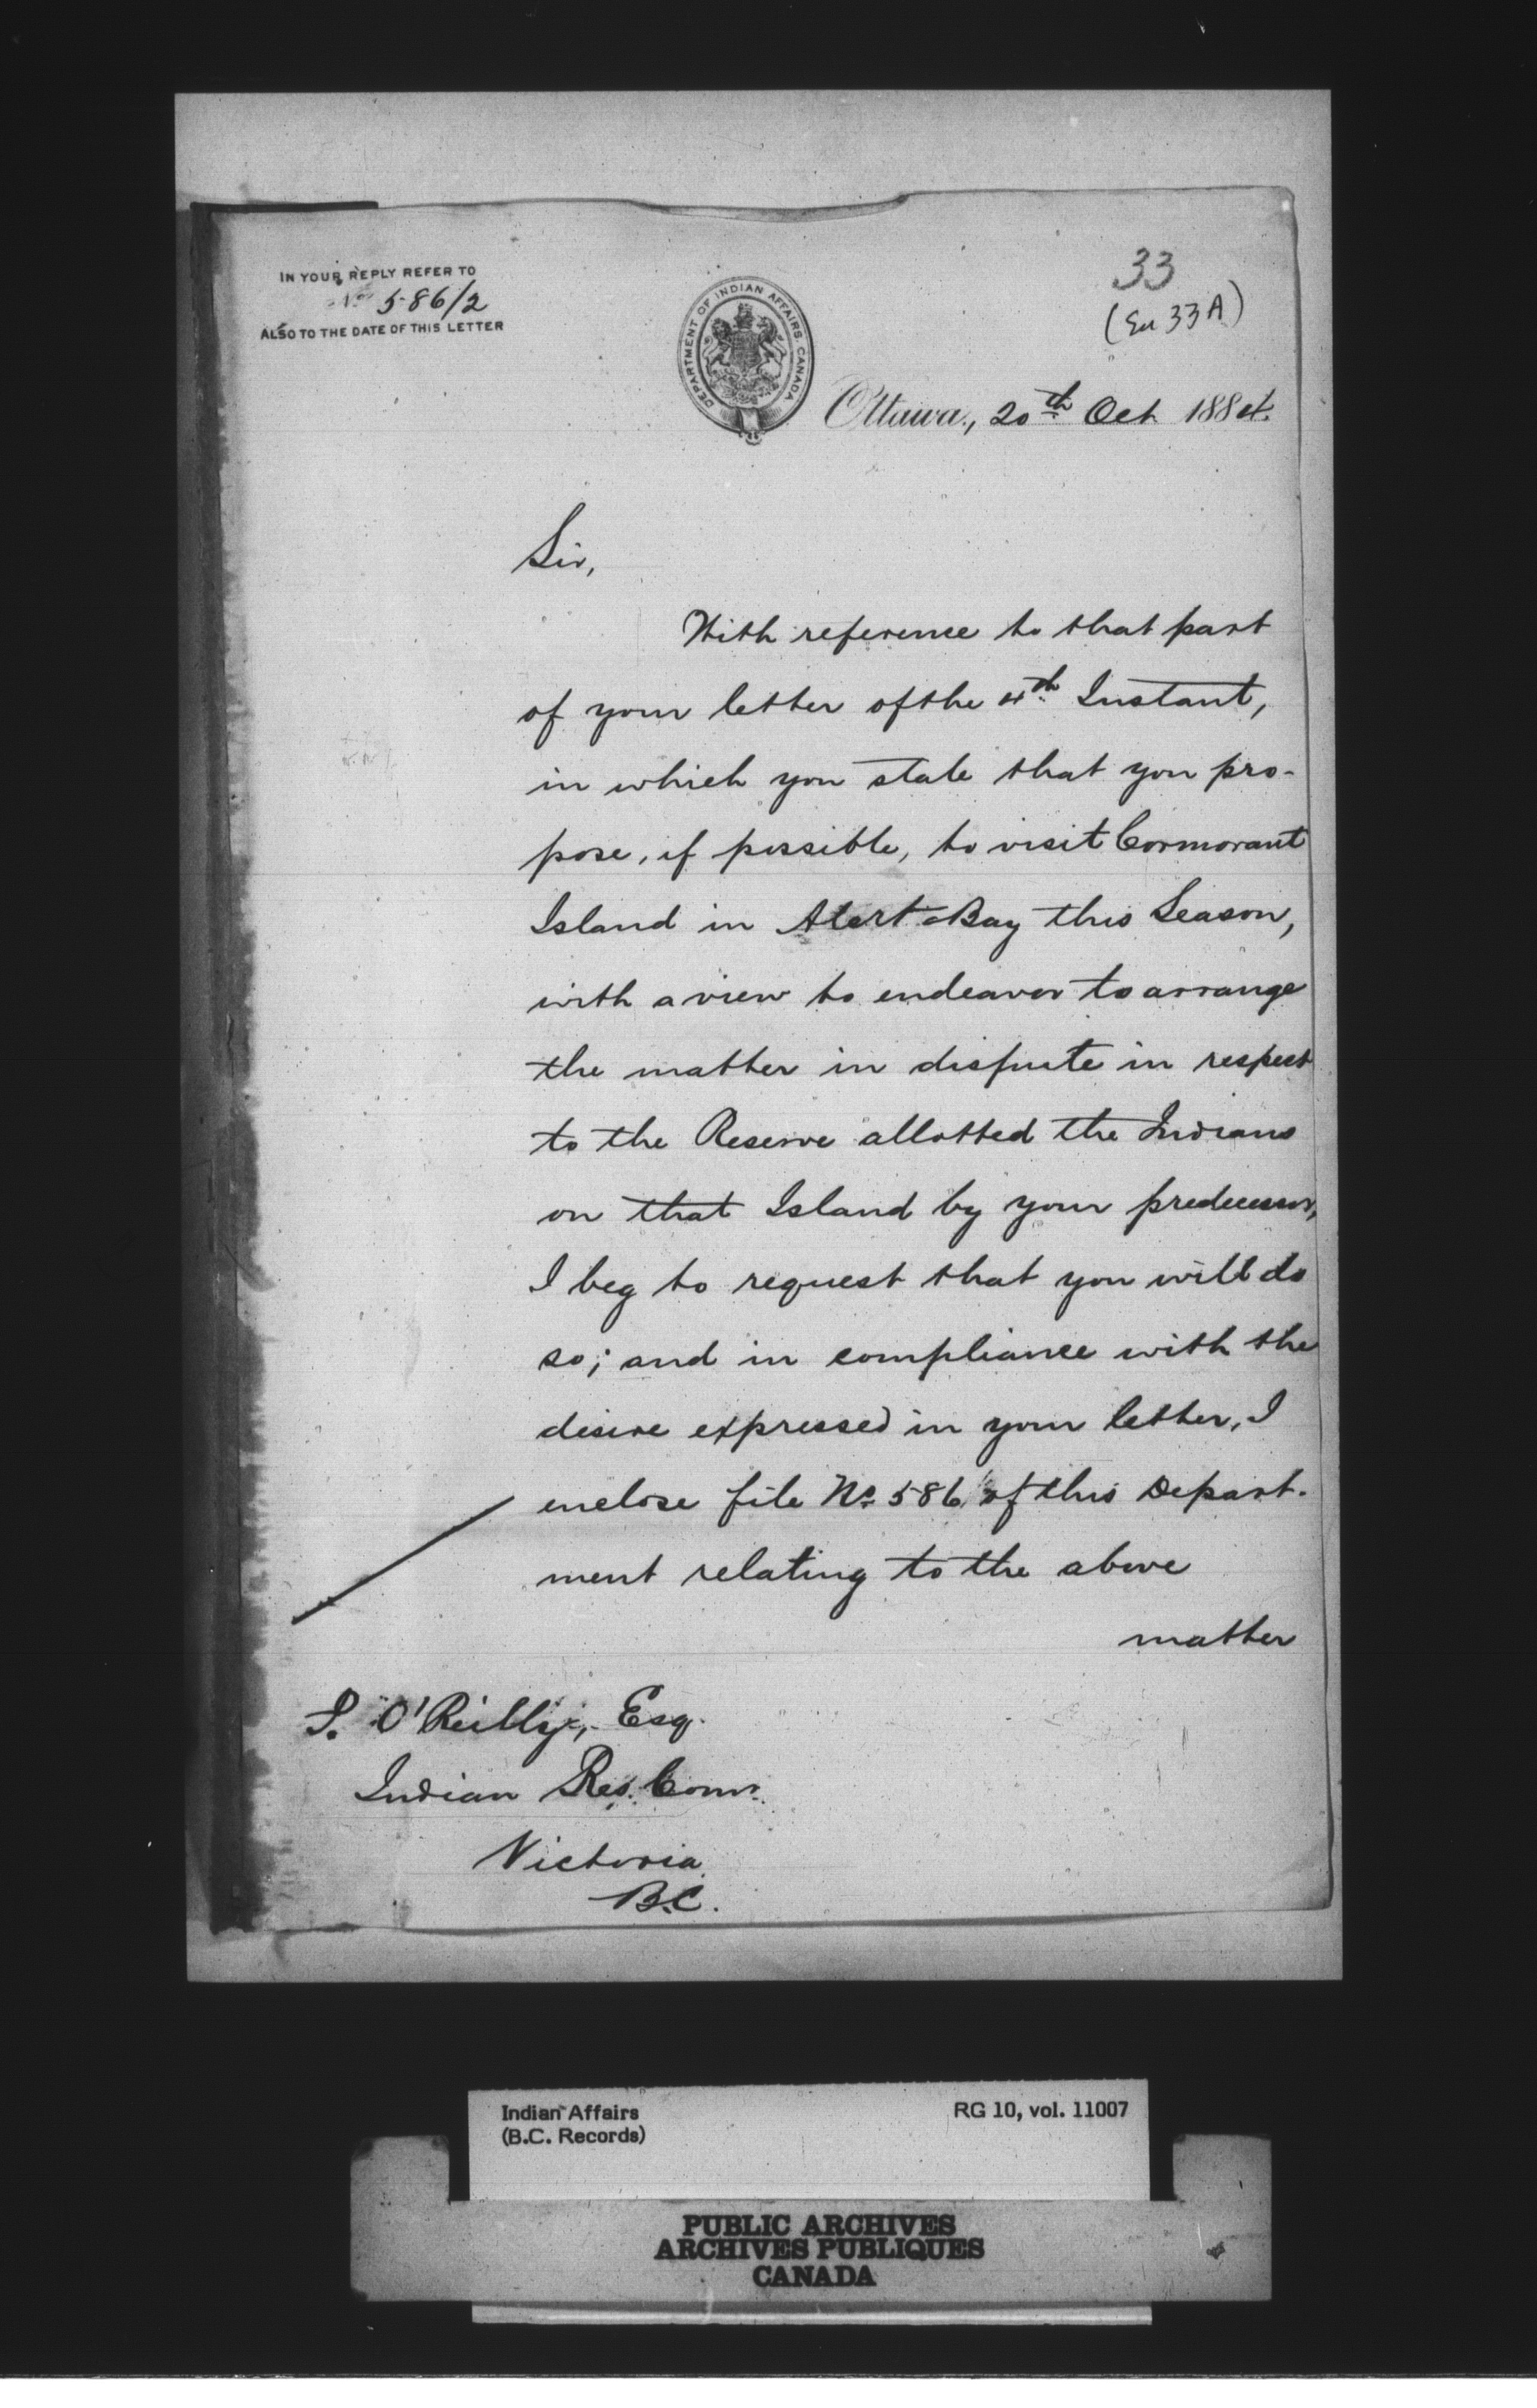 IN YOUR REPLY REFER TO
No 586/2
ALSO TO THE DATE OF THIS LETTER
DEPARTMENT OF INDIAN AFFAIRS. CANADA
33
( 33A)
Ottawa, 20th Oct 1884.
Sir,
With reference to that part
of your letter of the 4th Instant,
in which you state that you pro-
pose, if possible, to visit Cormorant
Island in Alert Bay this Season,
with a view to endeavor to arrange
the matter in dispute in respect
to the Reserve allotted the Indians
on that Island by your predecessor,
I beg to request that you will do
so; and in compliance with the
desire expressed in your letter, I
enclose file No 586 of this Depart-
ment relating to the above
matter
P. O'Reilly, Esq.
Indian Res. Comr.
Victoria
B.C.
Indian Affairs RG 10, vol. 11007
(B.C. Records)
PUBLIC ARCHIVES
ARCHIVES PUBLIQUES
CANADA